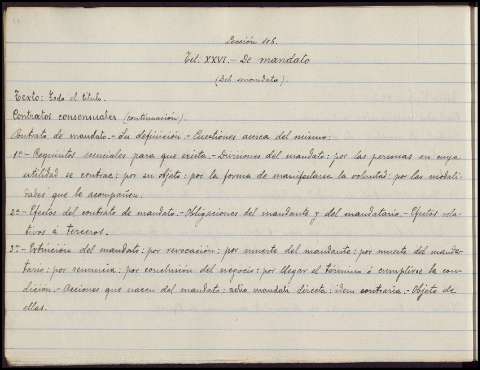 Lección 116.
Tít. XXVI. - De mandato
(Del mandato).
Texto: Todo el título.
Contratos consensuales (continuación).
Contrato de mandato. - Su definición. - Cuestiones acerca del mismo:
1º - Requisitos esenciales para que exista. - Divisiones del mandato: por las personas en cuya
utilidad se contrae; por su objeto; por la forma de manifestarse la voluntad; por las modali-
dades que le acompañen.
2º - Efectos del contrato de mandato. - Obligaciones del mandante y del mandatario. - Efectos rela-
tivos á terceros.
3º - Extinción del mandato: por revocación; por muerte del mandante; por muerte del manda-
tario; por renuncia; por conclusión del negocio; por llegar el término ó cumplirse la con-
dición. - Acciones que nacen del mandato: actio mandati directa; idem contraria. - Objeto de
ellas.